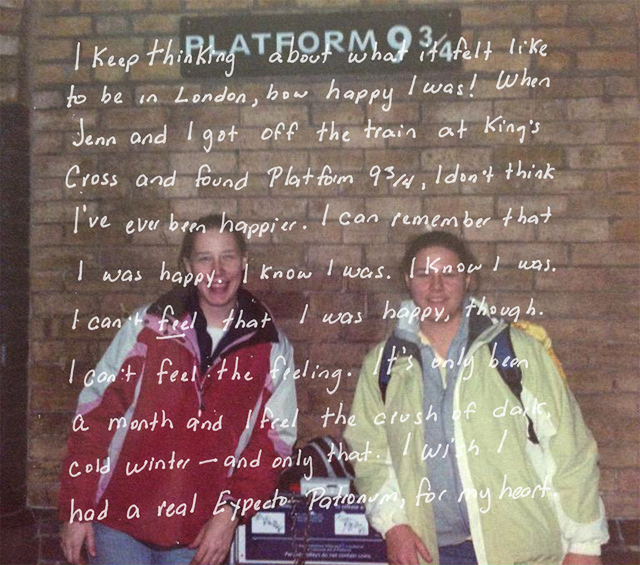 PLATFORM 9 3/4
I Keep thinking about what it felt like
to be in London, how happy I was! When
Jenn and I got off the train at King's
Cross and found Platform 9 3/4, I don't think
I've ever been happier. I can remember that
I was happy. I know I was. I Know I was.
I can't feel that I was happy, though.
I can't feel the feeling. It's only been
a month and I feel the crush of dark,
cold winter — and only that. I wish I
had a real Expecto Patronum, for my heart.
do not contain coins.